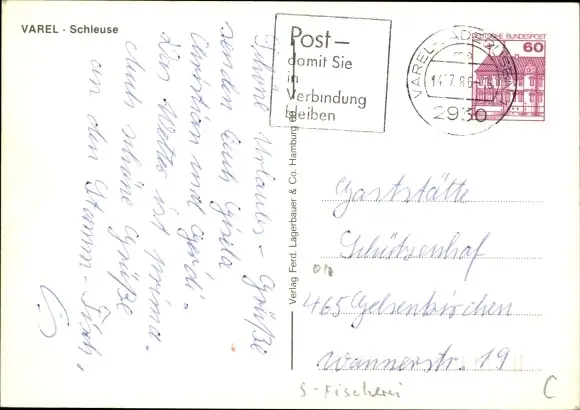 VAREL - Schleuse
Schöne Urlaubs-Grüße
senden Euch Gisela
Christian und Gerdi.
Das Wetter ist prima.
Auch schöne Grüße
an den Stamm-Tisch,
Post—
damit Sie
in
Verbindung
bleiben
VAREL
14.7.86
2930
DEUTSCHE BUNDESPOST
60
Verlag Ferd. Lagerbauer & Co. Hamburg
Gaststätte
Schützenhof
465 Gelsenkirchen
Wannerstr. 19
S-Fischerei
C